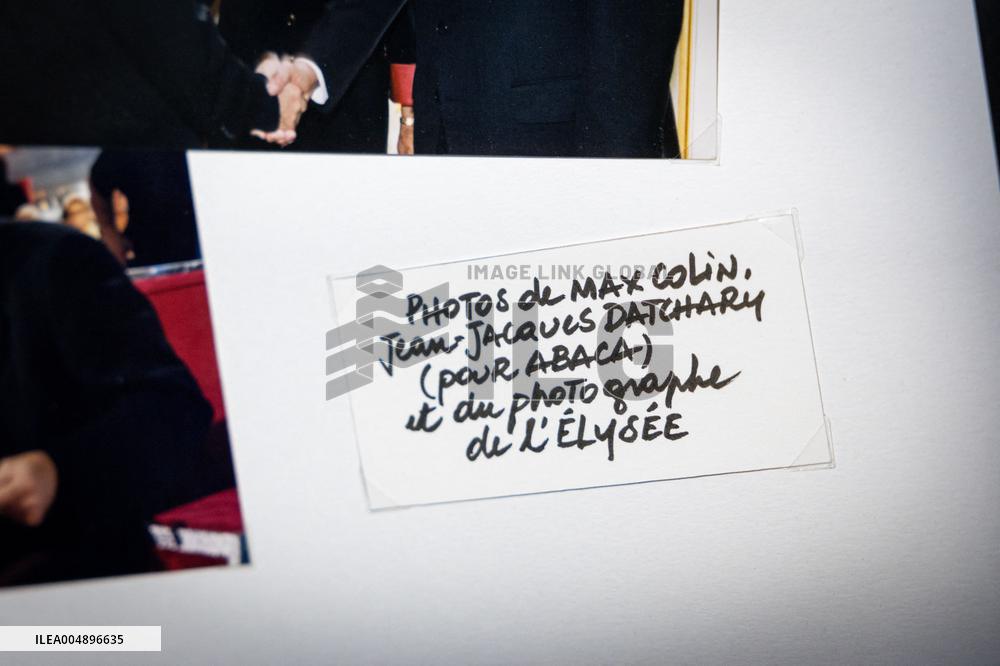 IMAGE LINK GLOBAL
ILG
PHOTOS de MAX COLIN.
Jean-JACQUES DATCHARY
(POUR ABACA)
et du photographe
de L'ÉLYSÉE
ILEA004896635